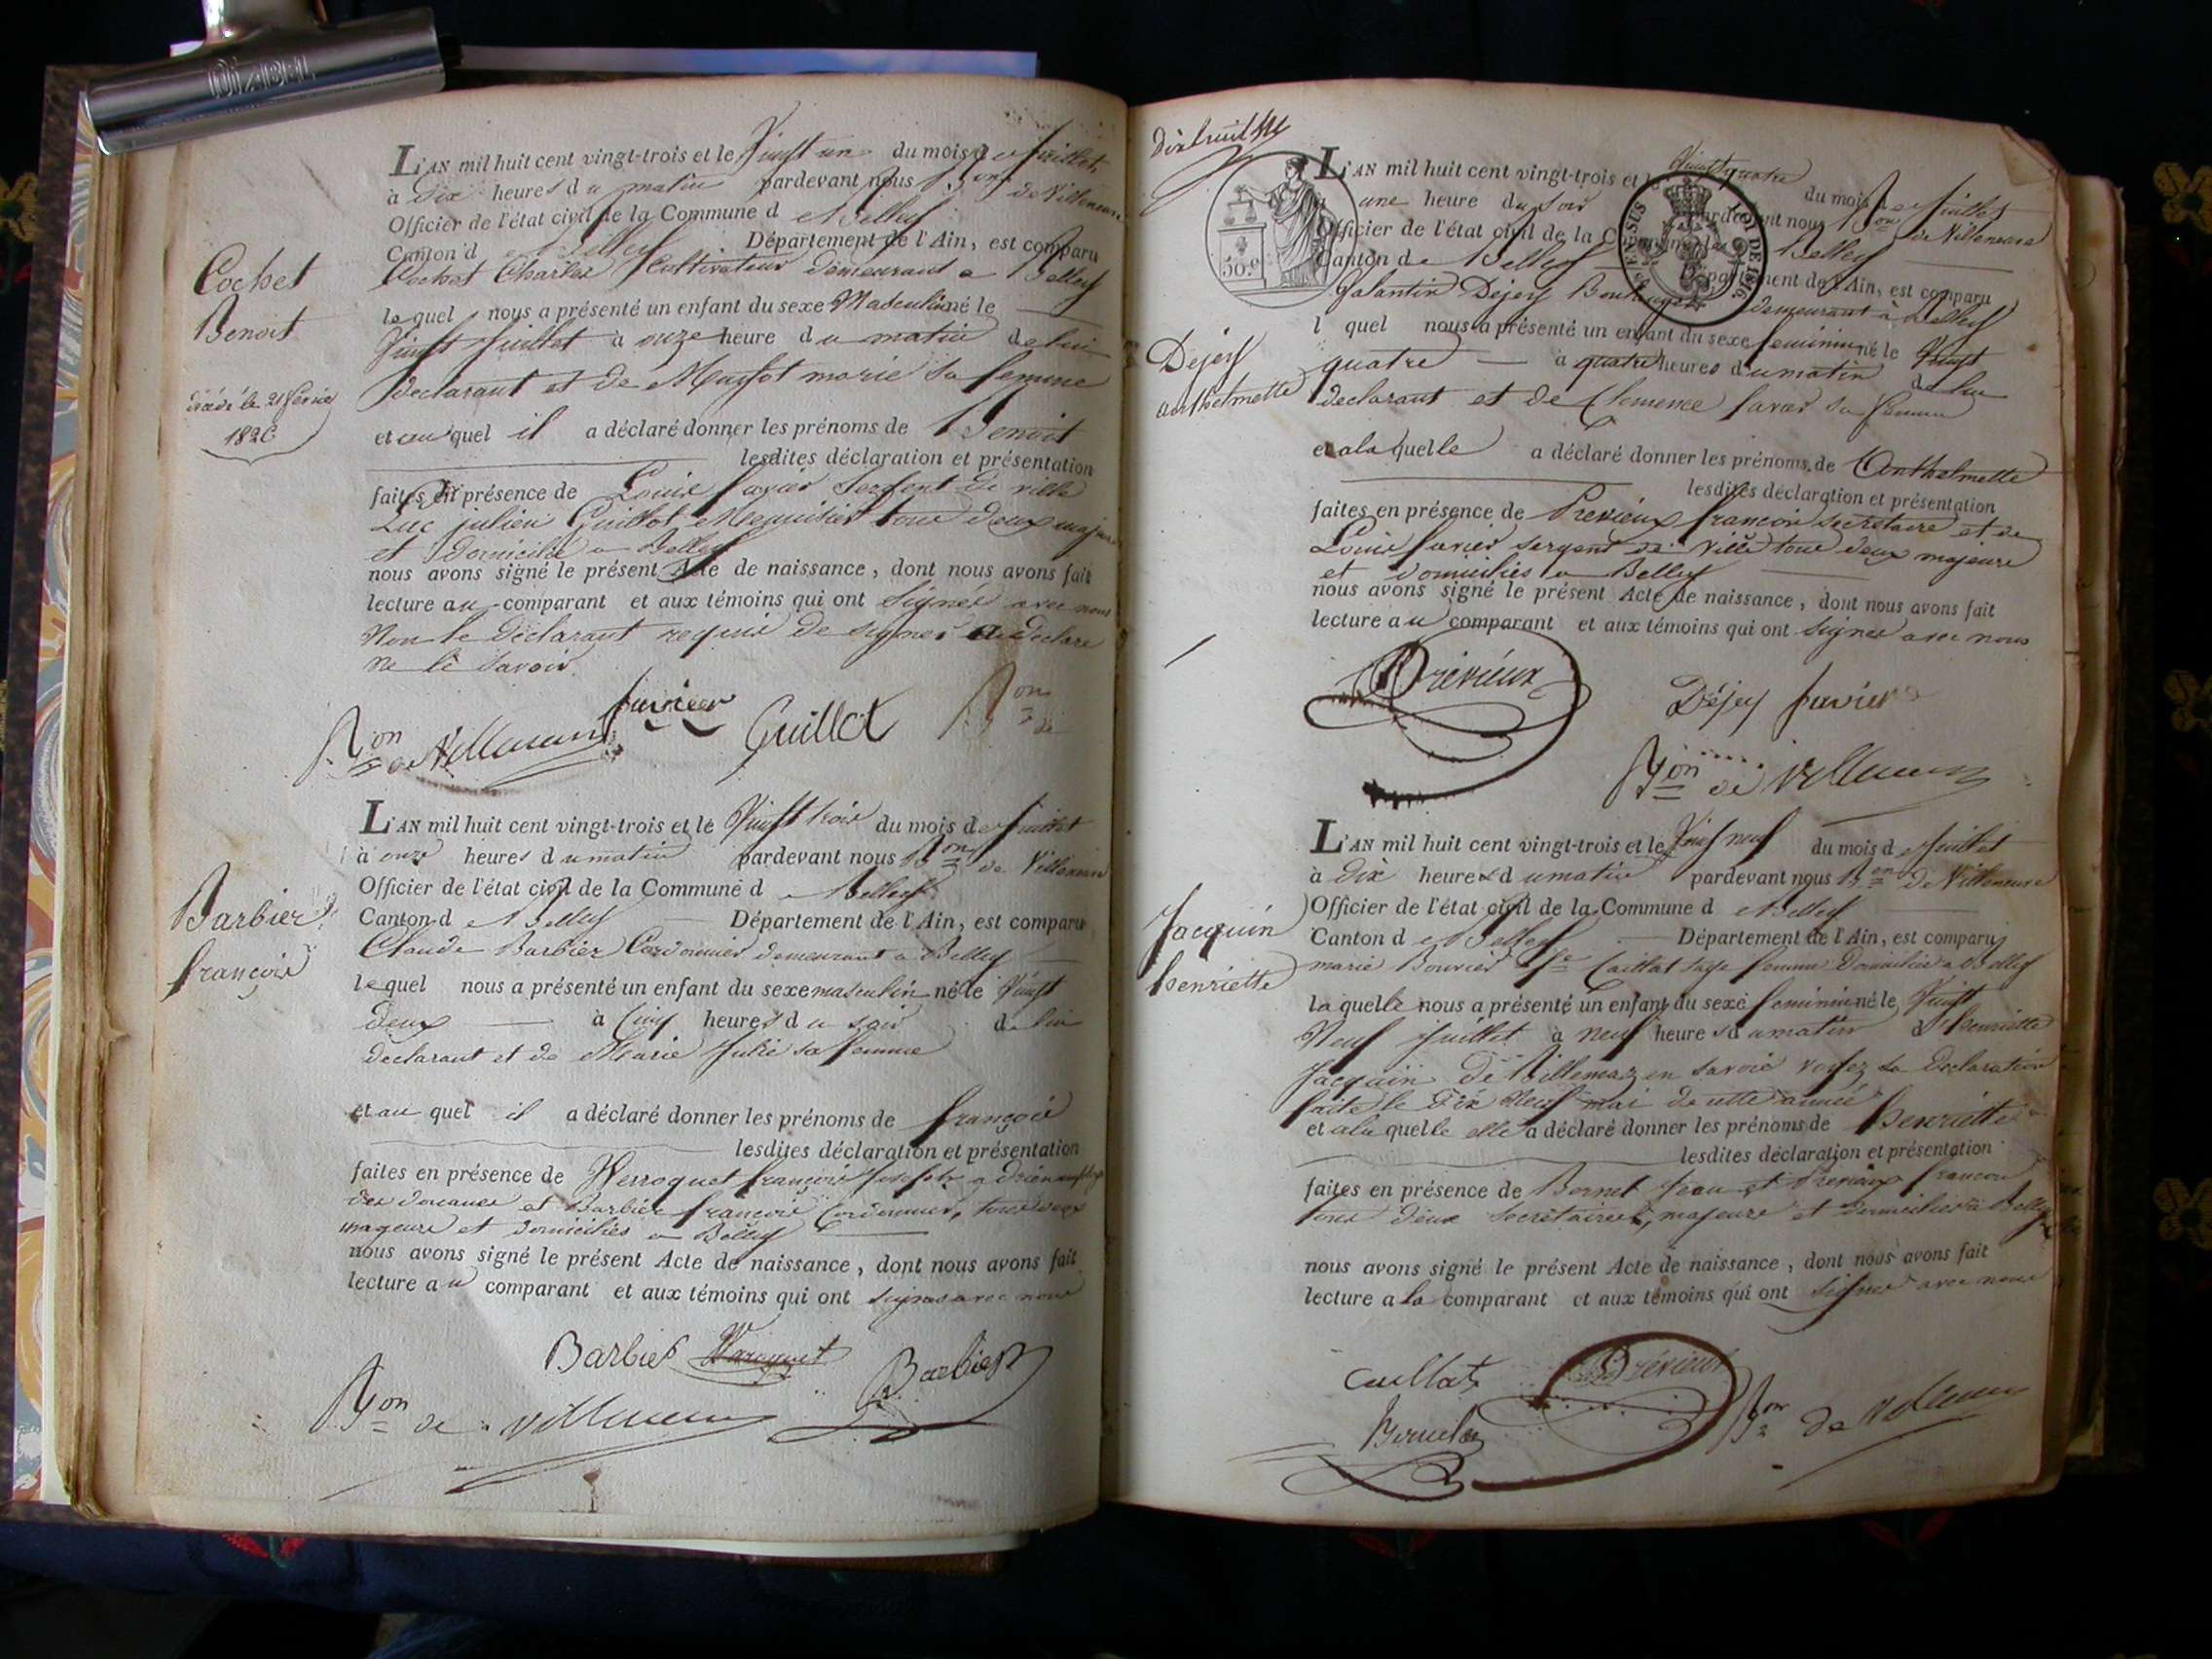 DIABEL
L'AN mil huit cent vingt-trois et le Vingt un du mois de juillet
à Dix heures du matin pardevant nous Bon de Villeneuve
Officier de l'état civil de la Commune de Belley
Canton de Belley Département de l'Ain, est comparu
Cochet Charles Cultivateur demeurant a Belley
lequel nous a présenté un enfant du sexe Masculin né le
Vingt juillet à onze heure du matin de lui
declarant et de marie sa femme
et au quel il a déclaré donner les prénoms de Benoit
lesdites déclaration et présentation
faites en présence de Louis Sergent de ville
Luc julien Guillot tous deux majeurs
et domicilié a Belley
nous avons signé le présent Acte de naissance, dont nous avons fait
lecture au comparant et aux témoins qui ont signés avec nous
Non le declarant requis de signer a declare
ne le savoir
Cochet
Benoit
décédé le 21 février
Guillot
Bon de Villeneuve
L'AN mil huit cent vingt-trois et le Vingt trois du mois de juillet
à onze heures du matin pardevant nous Bon de Villeneuve
Officier de l'état civil de la Commune de Belley
Canton de Belley Département de l'Ain, est comparu
Claude Barbier Cordonnier demeurant a Belley
lequel nous a présenté un enfant du sexe masculin né le Vingt
deux à Cinq heures du soir de lui
declarant et de Marie Julie sa femme
et au quel il a déclaré donner les prénoms de françois
lesdites déclaration et présentation
faites en présence de françois
des douanes et Barbier françois Cordonnier, tous deux
majeurs et domiciliés a Belley
nous avons signé le présent Acte de naissance, dont nous avons fait
lecture au comparant et aux témoins qui ont signés avec nous
Barbier
françois
Barbier Barbier
Bon de Villeneuve
L'AN mil huit cent vingt-trois et le Vingt quatre du mois de juillet
à une heure du soir pardevant nous Bon de Villeneuve
Officier de l'état civil de la Commune de Belley
Canton de Belley Département de l'Ain, est comparu
Dejey demeurant à Belley
l quel nous a présenté un enfant du sexe feminin né le Vingt
quatre à quatre heures du matin de lui
declarant et de Clemence sa femme
et a la quelle a déclaré donner les prénoms de Anthelmette
lesdites déclaration et présentation
faites en présence de Prévieux françois secretaire et de
Louis sergent de Ville tous deux majeurs
et domiciliés a Belley
nous avons signé le présent Acte de naissance, dont nous avons fait
lecture au comparant et aux témoins qui ont signés avec nous
50.c
LOI DE 1816
Dejey
anthelmette
Prévieux
Déjey
Bon de Villeneuve
L'AN mil huit cent vingt-trois et le Vingt neuf du mois de juillet
à Dix heures du matin pardevant nous Bon de Villeneuve
Officier de l'état civil de la Commune de Belley
Canton de Belley Département de l'Ain, est comparu
marie Bouvier fe Caillat sage femme Domiciliée a Belley
la quelle nous a présenté un enfant du sexe feminin né le Vingt
Neuf juillet à neuf heures du matin d'henriette
Jacquin de en savoie voyez sa Declaration
faite le Dix neuf mai de cette année
et a la quelle elle a déclaré donner les prénoms de henriette
lesdites déclaration et présentation
faites en présence de Bornet Jean et Prévieux francois
tous deux secretaires, majeurs et domiciliés à Belley
nous avons signé le présent Acte de naissance, dont nous avons fait
lecture a la comparant et aux témoins qui ont signés avec nous
Jacquin
henriette
Caillat
Prévieux
Bon de Villeneuve